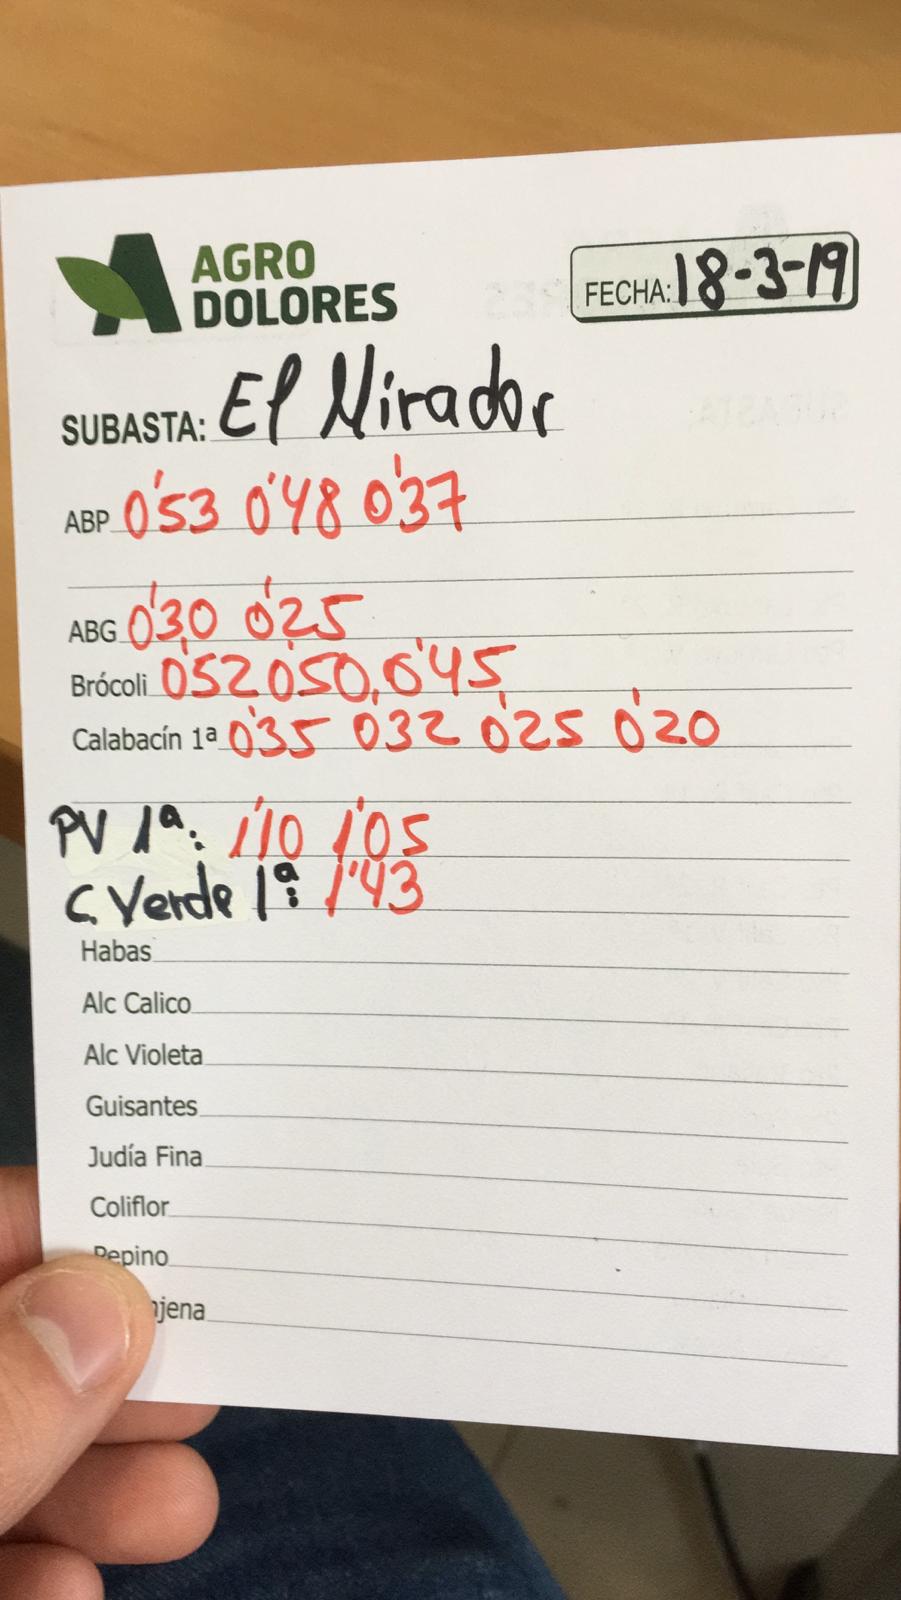 AGRO
DOLORES
FECHA: 18-3-19
SUBASTA: El Mirador
ABP 0'53 0'48 0'37
ABG 0'30 0'25
Brócoli 0'52 0'50, 0'45
Calabacín 1ª 0'35 032 0'25 0'20
PV 1ª: 1'10 1'05
C. Verde 1ª: 1'43
Habas
Alc Calico
Alc Violeta
Guisantes
Judía Fina
Coliflor
Pepino
njena